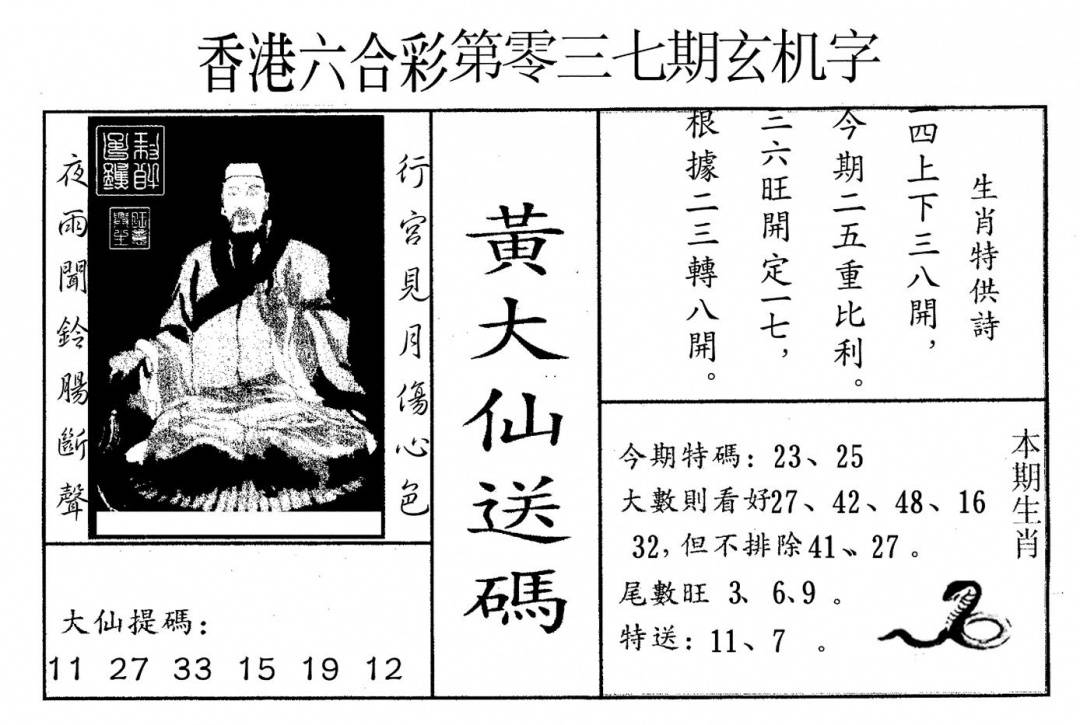 香港六合彩第零三七期玄机字
行宮見月傷心色
夜雨聞鈴腸斷聲
大仙提碼：
11 27 33 15 19 12
黃大仙送碼
生肖特供詩
一四上下三八開，
今期二五重比利。
三六旺開定一七，
根據二三轉八開。
本期生肖
今期特碼：23、25
大數則看好27、42、48、16
32，但不排除41、27。
尾數旺 3、6、9 。
特送：11、7 。